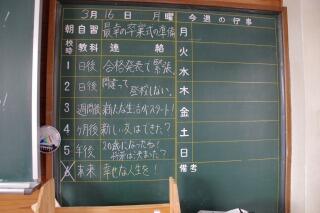 3月16日 月曜 今週の行事
朝自習 最幸の卒業式の準備 月
校時 教科 連絡 火
1 日後 合格発表で緊張。 水
2 日後 間違って登校しない。 木
3 週間後 新たな生活がスタート! 金
4 ヶ月後 新しい友はできた? 土
5 年後 20歳になったね! 将来は決まった? 日
6 未来 幸せな人生を! 備考